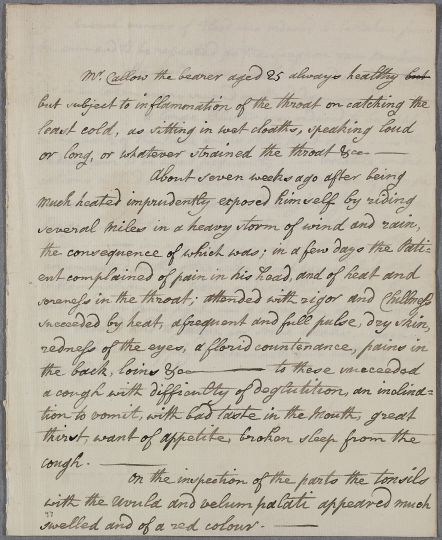 Mr. Callow the bearer aged 25 always healthy but
but subject to inflammation of the throat on catching the
least cold, as sitting in wet cloaths, speaking loud
or long, or whatever strained the throat &c —
About seven weeks ago after being
much heated imprudently exposed himself by riding
several miles in a heavy storm of wind and rain,
the consequence of which was; in a few days the Pati=
ent complained of pain in his head, and of heat and
soreness in the throat; attended with rigor and Chillness
succeeded by heat, a frequent and full pulse, dry skin,
redness of the eyes, a florid countenance, pains in
the back, loins &c — to these succeeded
a cough with difficulty of deglutition, an inclina=
tion to vomit, with bad taste in the mouth, great
thirst, want of appetite, broken sleep from the
cough. —
On the inspection of the parts the tonsils
with the Uvula and velum palati appeared much
swelled and of a red colour. —